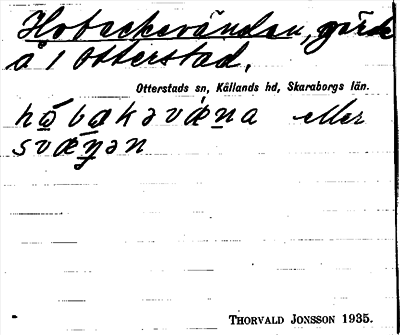 Hobackevänden, gärde
å 1 Otterstad.
Otterstads sn, Kållands hd, Skaraborgs län.
hɷ́bakəvǽna eller
svæŋən
THORVALD JONSSON 1935.